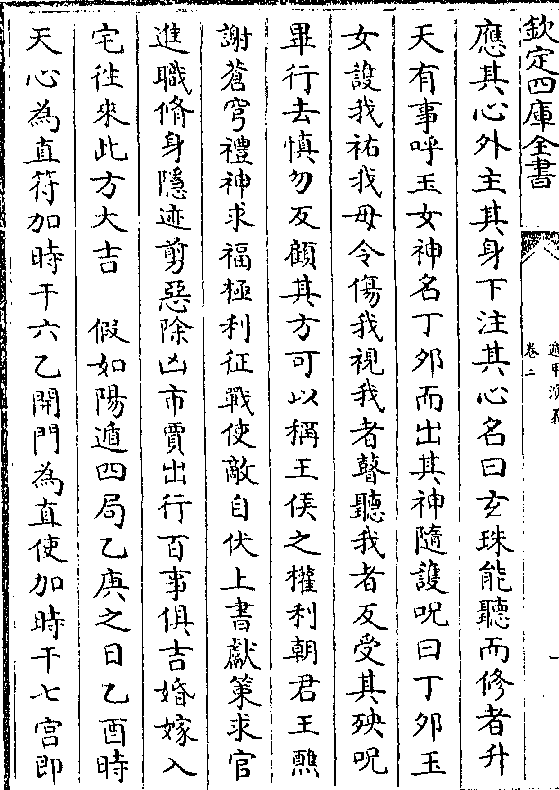 欽定四庫全書
遁甲演義
卷二
應其心外主其身下注其心名曰玄珠能聽而修者升
天有事呼玉女神名丁夘而出其神隨護呪曰丁夘玉
女護我祐我毋令傷我視我者瞽聽我者反受其殃呪
畢行去慎勿反顧其方可以稱王侯之權利朝君王醮
謝蒼穹禮神求福極利征戰使敵自伏上書獻策求官
進職脩身隱迹剪惡除凶市賈出行百事俱吉婚嫁入
宅徃來此方大吉　假如陽遁四局乙庚之日乙酉時
天心為直符加時干六乙開門為直使加時干七宫即